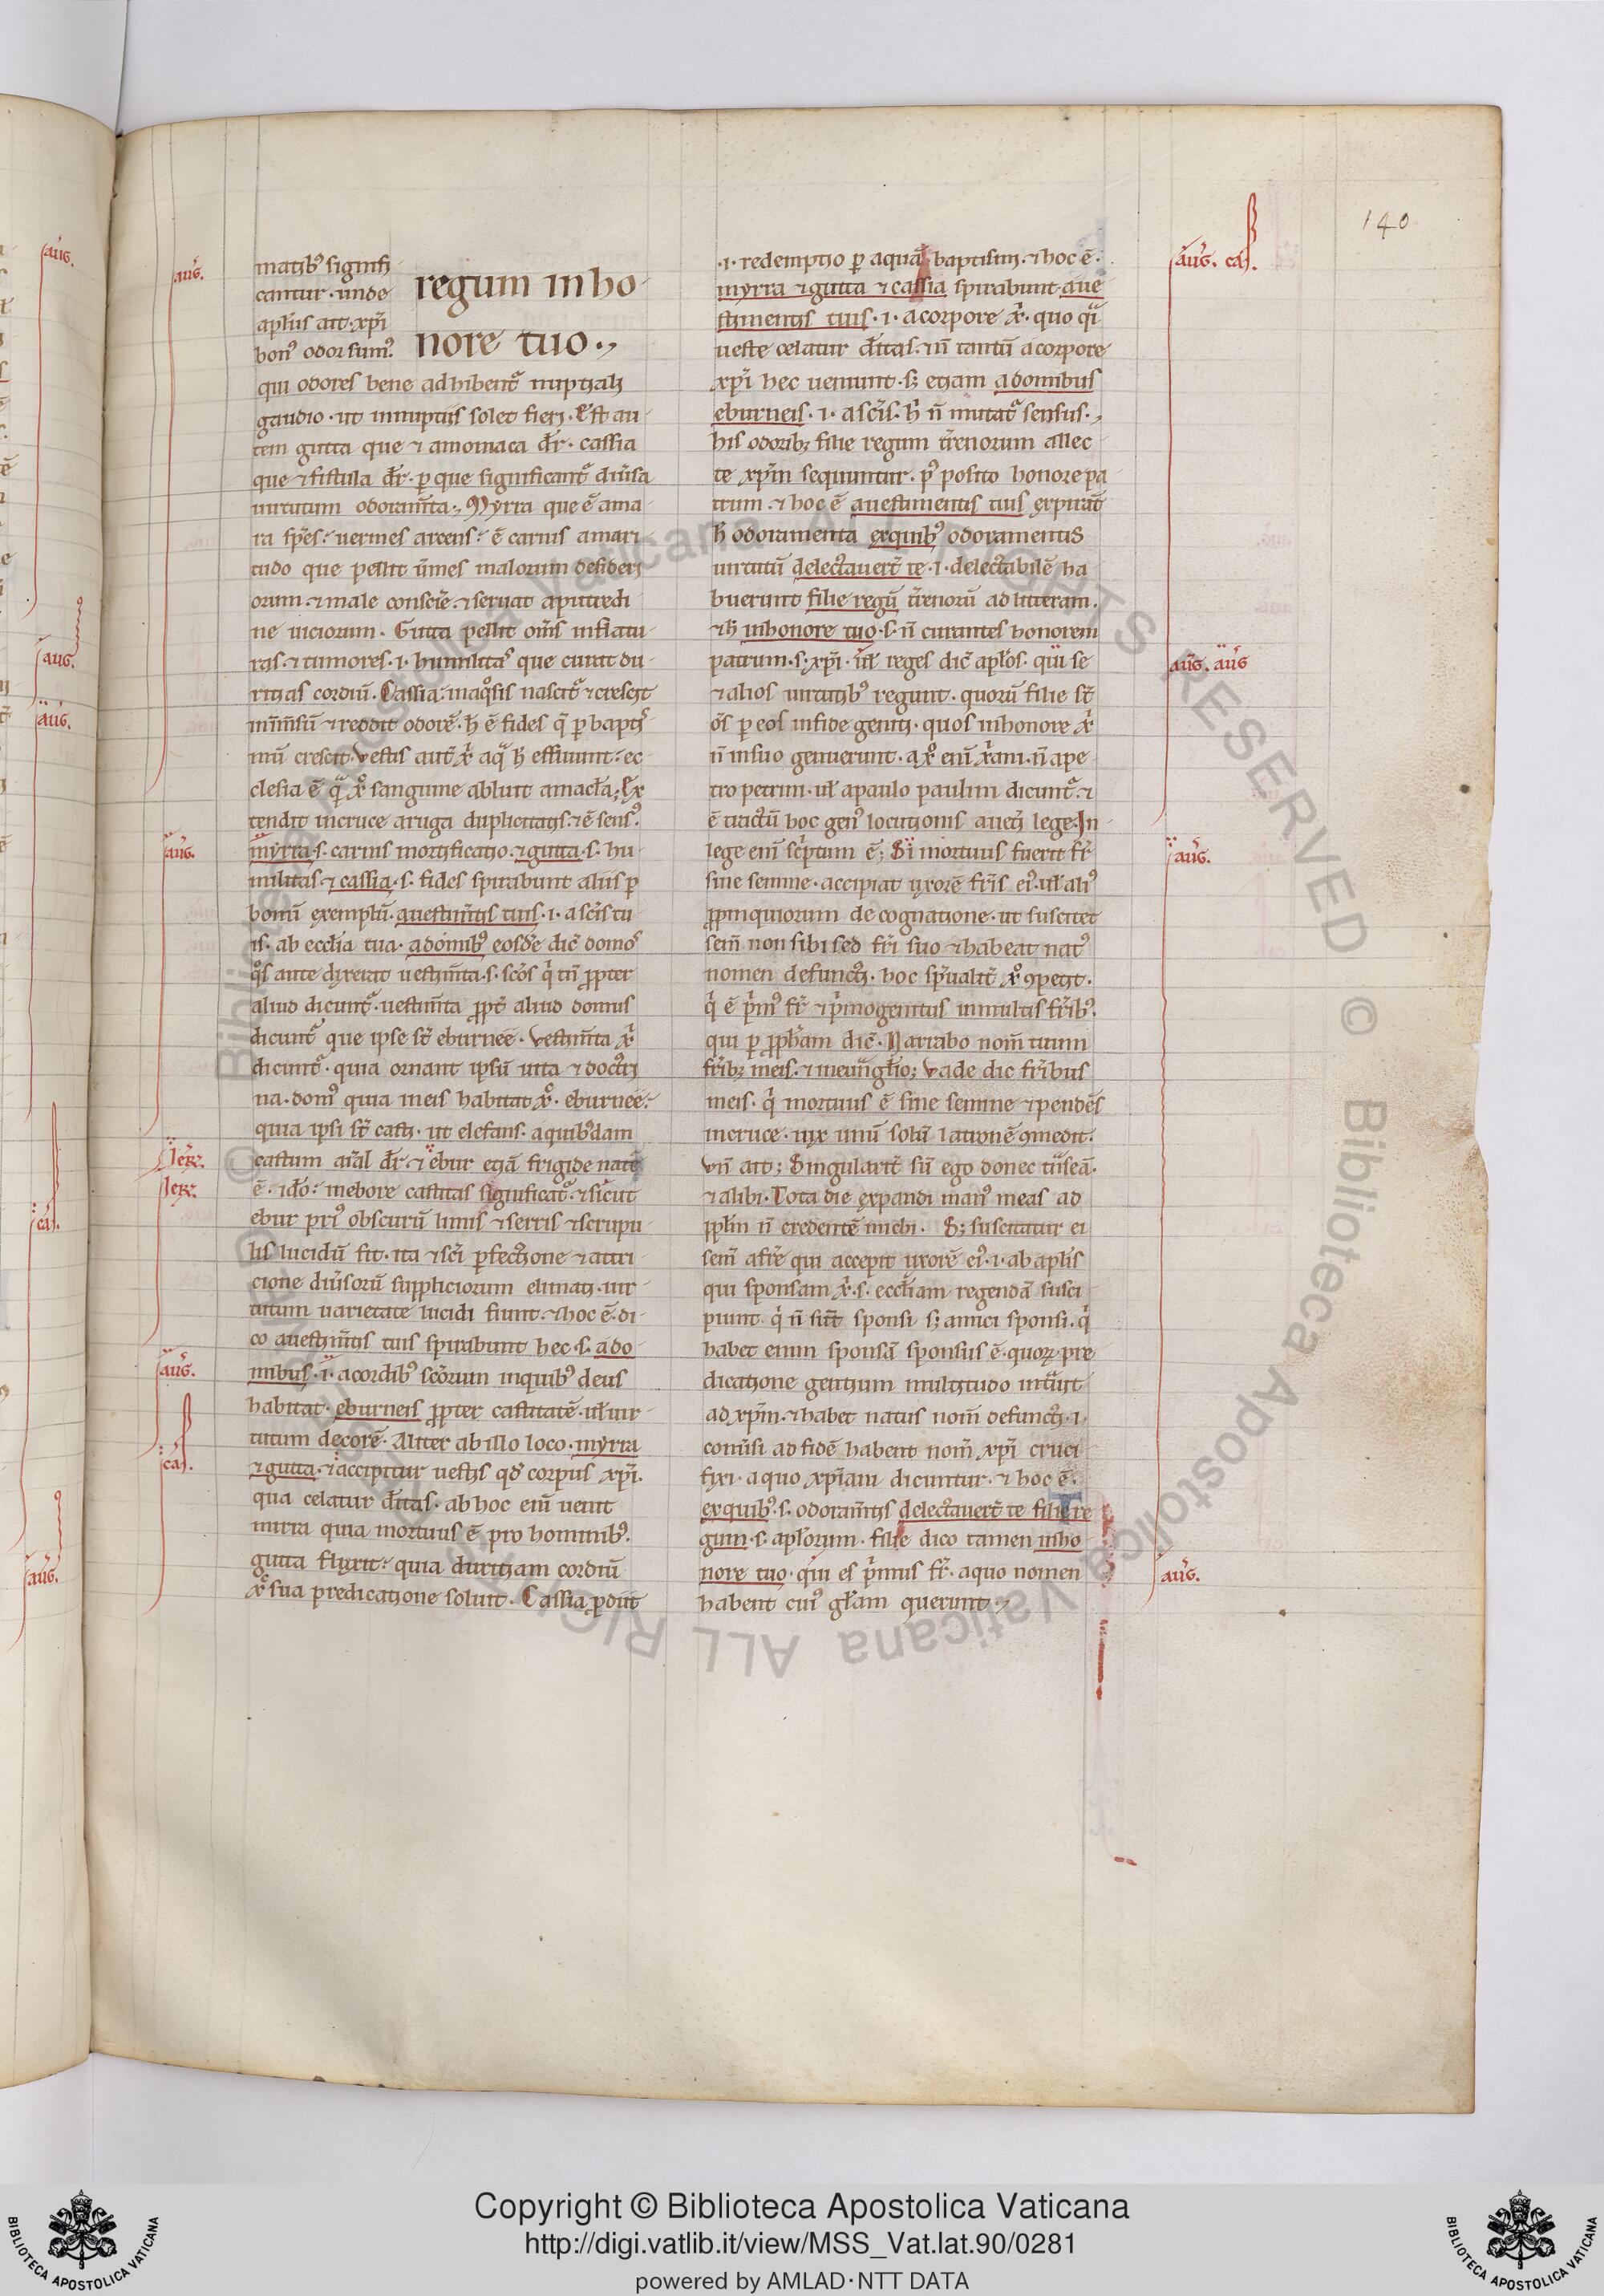 140
aug̃.
matib᷒ signifi
cantur · unde
apl̃us ait · xp̃i
bon᷒ odor sum᷒.
regum in ho
nore tuo .,
qui odores bene adhibent᷑ nuptiali
gaudio · ut in nuptiis solet fieri · Est au
tem gutta que ⁊ amoniaca dr̃ · cassia
que ⁊ fistula dr̃ · ꝑ que significant᷑ diũsa
uirtutum odoram̃ta ., Myrra que ẽ ama
ra sp̃es · uermes arcens · ẽ carnis amari
tudo que pellit ũmes malorum desideri
orum · ⁊ male consciẽ · ⁊ seruat a putredi
ne uiciorum · Gutta pellit om̃s inflatu
ras · ⁊ tumores · i · humilitas que curat du
ritias cordiũ · Cassia · in aq̃sis nascit᷑ ⁊ crescit
in im̃sũ ⁊ reddit odorẽ · h̃ ẽ fides q̃ ꝑ baptis
mũ crescit · Vestis aut̃ xp̃i a q̃ h̃ effluunt · ec
clesia ẽ q̃ xp̃o sanguine abluit a macl̃a ; Ex
tendit in cruce a ruga duplicitatis · ⁊ ẽ sens᷒.
aug̃.
myrra · s · carnis mortificatio · ⁊ gutta · s · hu
militas · ⁊ cassia · s · fides spirabunt aliis ꝑ
bonũ exemplũ · a uestim̃tis tuis · i · a sc̃is tu
is · ab eccl̃ia tua · a domib᷒ eosdẽ dic̃ domos
q̃s ante dixerat uestim̃ta · s · sc̃os q̃ tñ ꝓpter
aliud dicunt᷑ · uestim̃ta ꝓpt̃ aliud domus
dicunt᷑ que ipse st̃ eburnee · Vestim̃ta xp̃i
dicunt᷑ · quia ornant ipsũ uita ⁊ doctri
na · dom᷒ quia in eis habitat xp̃c · eburnee ·
quia ipsi st̃ casti · ut elefans · a quib᷒dam
Ier̃.
castum aĩal dr̃ · ⁊ ebur etiã frigide natẽ
Ier̃.
ẽ · idõ · in ebore castitas significat᷑ · ⁊ sicut
ebur pri᷒ obscurũ limis ⁊ serris ⁊ scrupu
lis lucidũ fit · ita ⁊ sc̃i ꝑfectione ⁊ attri
cione diũsorũ suppliciorum elimati · uir
tutum uarietate lucidi fiunt · ⁊ hoc ẽ · di
co a uestim̃tis tuis spirabunt hec · s · a do
aug̃.
mibus · i · a cordib᷒ sc̃orum in quib᷒ deus
habitat · eburneis ꝓpter castitatẽ · ul̃ uir
tutum decorẽ · Aliter ab illo loco · myrra
cas̃.
⁊ gutta · ⁊ accipitur uestis qd̃ corpus xp̃i.
qua celatur d̃itas · ab hoc em̃ uenit
mirra quia mortuus ẽ pro hominib᷒.
gutta fluxit · quia duritiam cordiũ
xp̃c sua predicatione soluit · Cassia ꝓdiit
aug̃. cas̃.
· i · redemptio ꝑ aquã baptismi · ⁊ hoc ẽ ·
myrra ⁊ gutta ⁊ cassia spirabunt a ue
stimentis tuis · i · a corpore xp̃i · quo q̃i
ueste celatur d̃itas · ñ tantũ a corpore
xp̃i hec ueniunt · sꝫ etiam a domibus
eburneis · i · a sc̃is · h̃ ñ mutat᷑ sensus .,
his odoribꝫ filie regum tr̃enorum allec
te xp̃m sequuntur · p᷒ posito honore pa
trum · ⁊ hoc ẽ a uestimentis tuis expirãt
h̃ odoramenta ex quib᷒ odoramentis
uirtutũ delectauer̃t te · i · delectabilẽ ha
buerunt filie regũ tr̃enorũ ad litteram.
⁊ h̃ in honore tuo · s · ñ curantes honorem
aug̃. aug̃
patrum · s · xp̃i · ul̃ reges dic̃ apl̃os · qui se
⁊ alios uirtutib᷒ regunt · quorũ filie st̃
õs ꝑ eos in fide geniti · quos in honore xp̃i
ñ in suo genuerunt · a xp̃o em̃ xp̃iani · ñ a pe
tro petrini · ul̃ a paulo paulini dicunt᷑ · ⁊
ẽ tractũ hoc gen᷒ locutionis a ueti lege · In
aug̃.
lege em̃ sc̃ptum ẽ ; Si mortuus fuerit fr̃
sine semine · accipiat uxorẽ fr̃is ei᷒ · ul̃ ali᷒
ꝓpinquiorum de cognatione · ut suscitet
sem̃ non sibi sed fr̃i suo ⁊ habeat nat᷒
nomen defuncti · hoc sp̃ualit̃ xp̃o ꝯpetit.
q̃ ẽ p̃m᷒ fr̃ ⁊ p̃mogenitus in multis fr̃ib᷒.
qui ꝑ ꝓph̃am dic̃ · Narrabo nom̃ tuum
fr̃ibꝫ meis · ⁊ in euãgl̃io ; Vade dic fr̃ibus
meis · q̃ mortuus ẽ sine semine ⁊ pendẽs
in cruce · uix unũ solũ latronẽ ꝯuertit.
Vñ ait ; Singularit̃ sũ ego donec trãseã.
⁊ alibi · Tota die expandi man᷒ meas ad
ppl̃m ñ credentẽ michi · Sꝫ suscitatur ei
sem̃ a fr̃e qui accepit uxorẽ ei᷒ · i · ab apl̃is
qui sponsam xp̃i · s · eccl̃iam regendã susci
piunt · q̃ ñ sũt sponsi sꝫ amici sponsi · q̃
habet enim sponsã sponsus ẽ · quoꝝ pre
dicatione gentium multitudo intrauit
ad xp̃m · ⁊ habet natus nom̃ defuncti · i ·
conũsi ad fidẽ habent nom̃ xp̃i cruci
fixi · a quo xp̃iani dicuntur · ⁊ hoc ẽ ·
ex quib᷒ · s · odoram̃tis delectauer̃t te filie re
gum · s · apl̃orum · filie dico tamen in ho
aug̃.
nore tuo · qui es p̃mus fr̃ · a quo nomen
habent cui᷒ gl̃am querunt .,
aug̃.
aug̃.
aug̃.
cas̃.
aug̃.
Copyright © Biblioteca Apostolica Vaticana
http://digi.vatlib.it/view/MSS_Vat.lat.90/0281
powered by AMLAD·NTT DATA
BIBLIOTECA APOSTOLICA VATICANA
BIBLIOTECA APOSTOLICA VATICANA
© Biblioteca Apostolica Vaticana ALL RIGHTS RESERVED © Biblioteca Apostolica Vaticana ALL RIGHTS RESERVED